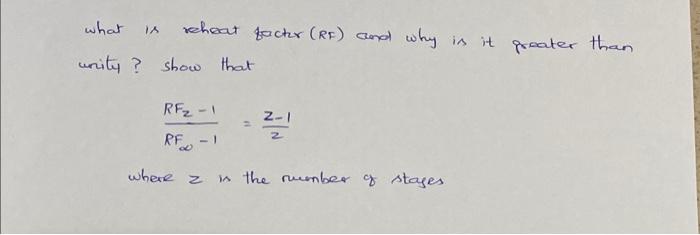 what is reheat factor (RF) and why is it greater than
unity? show that
RF_z - 1 / RF_∞ - 1 = z-1 / z
where z is the number of stages